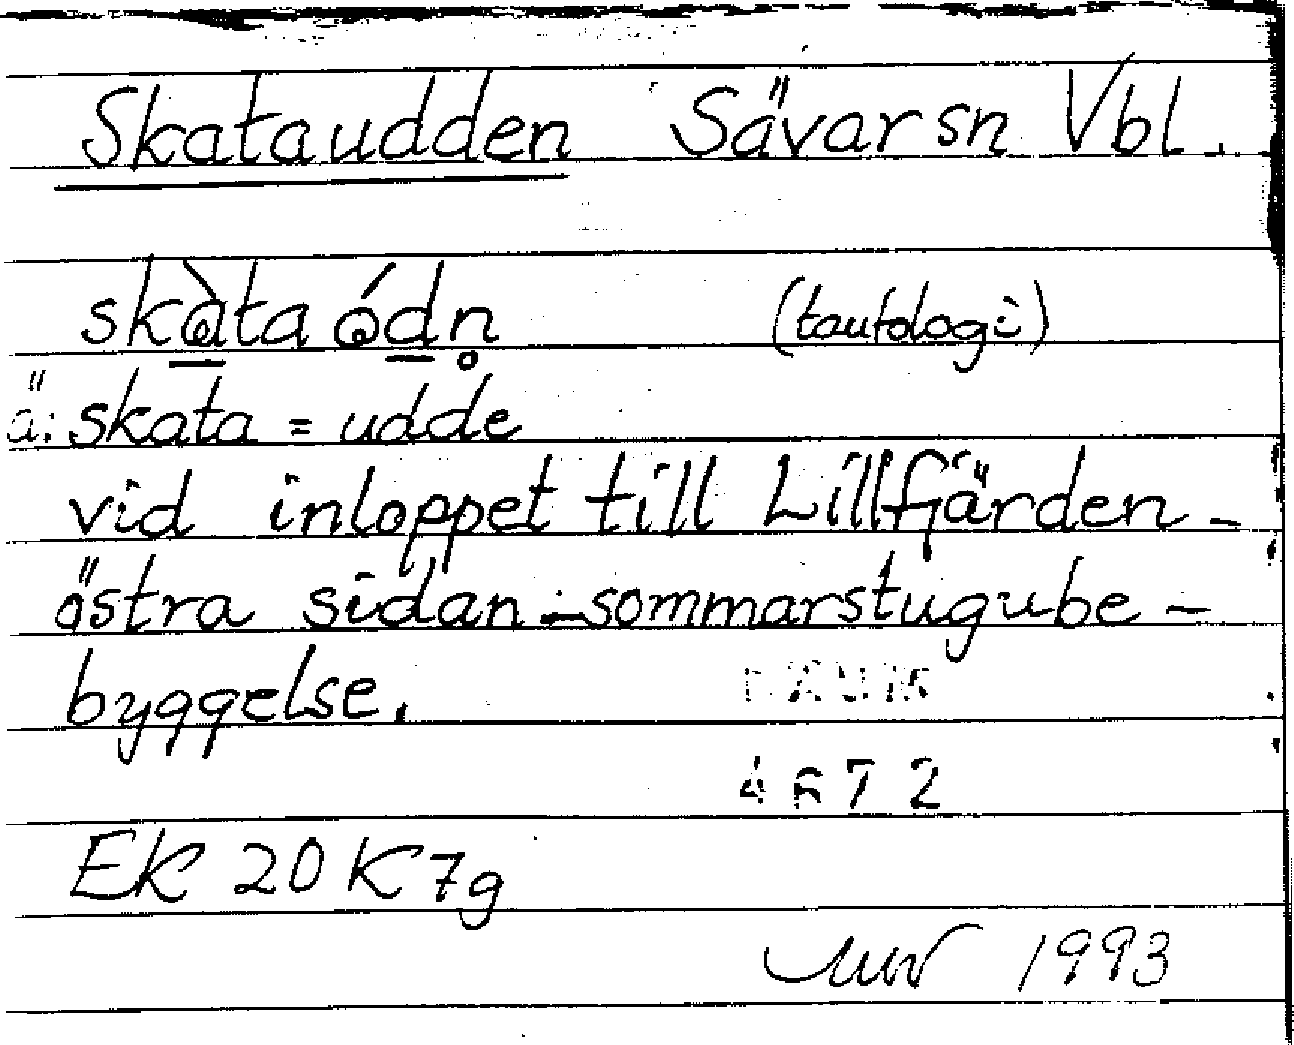 Skataudden Sävar sn Vbl.
skàta ódn̥ (tautologi)
ä: skata = udde
vid inloppet till Lillfjärden -
östra sidan - sommarstugube -
byggelse.
4672
EK 20 K 7g
1993